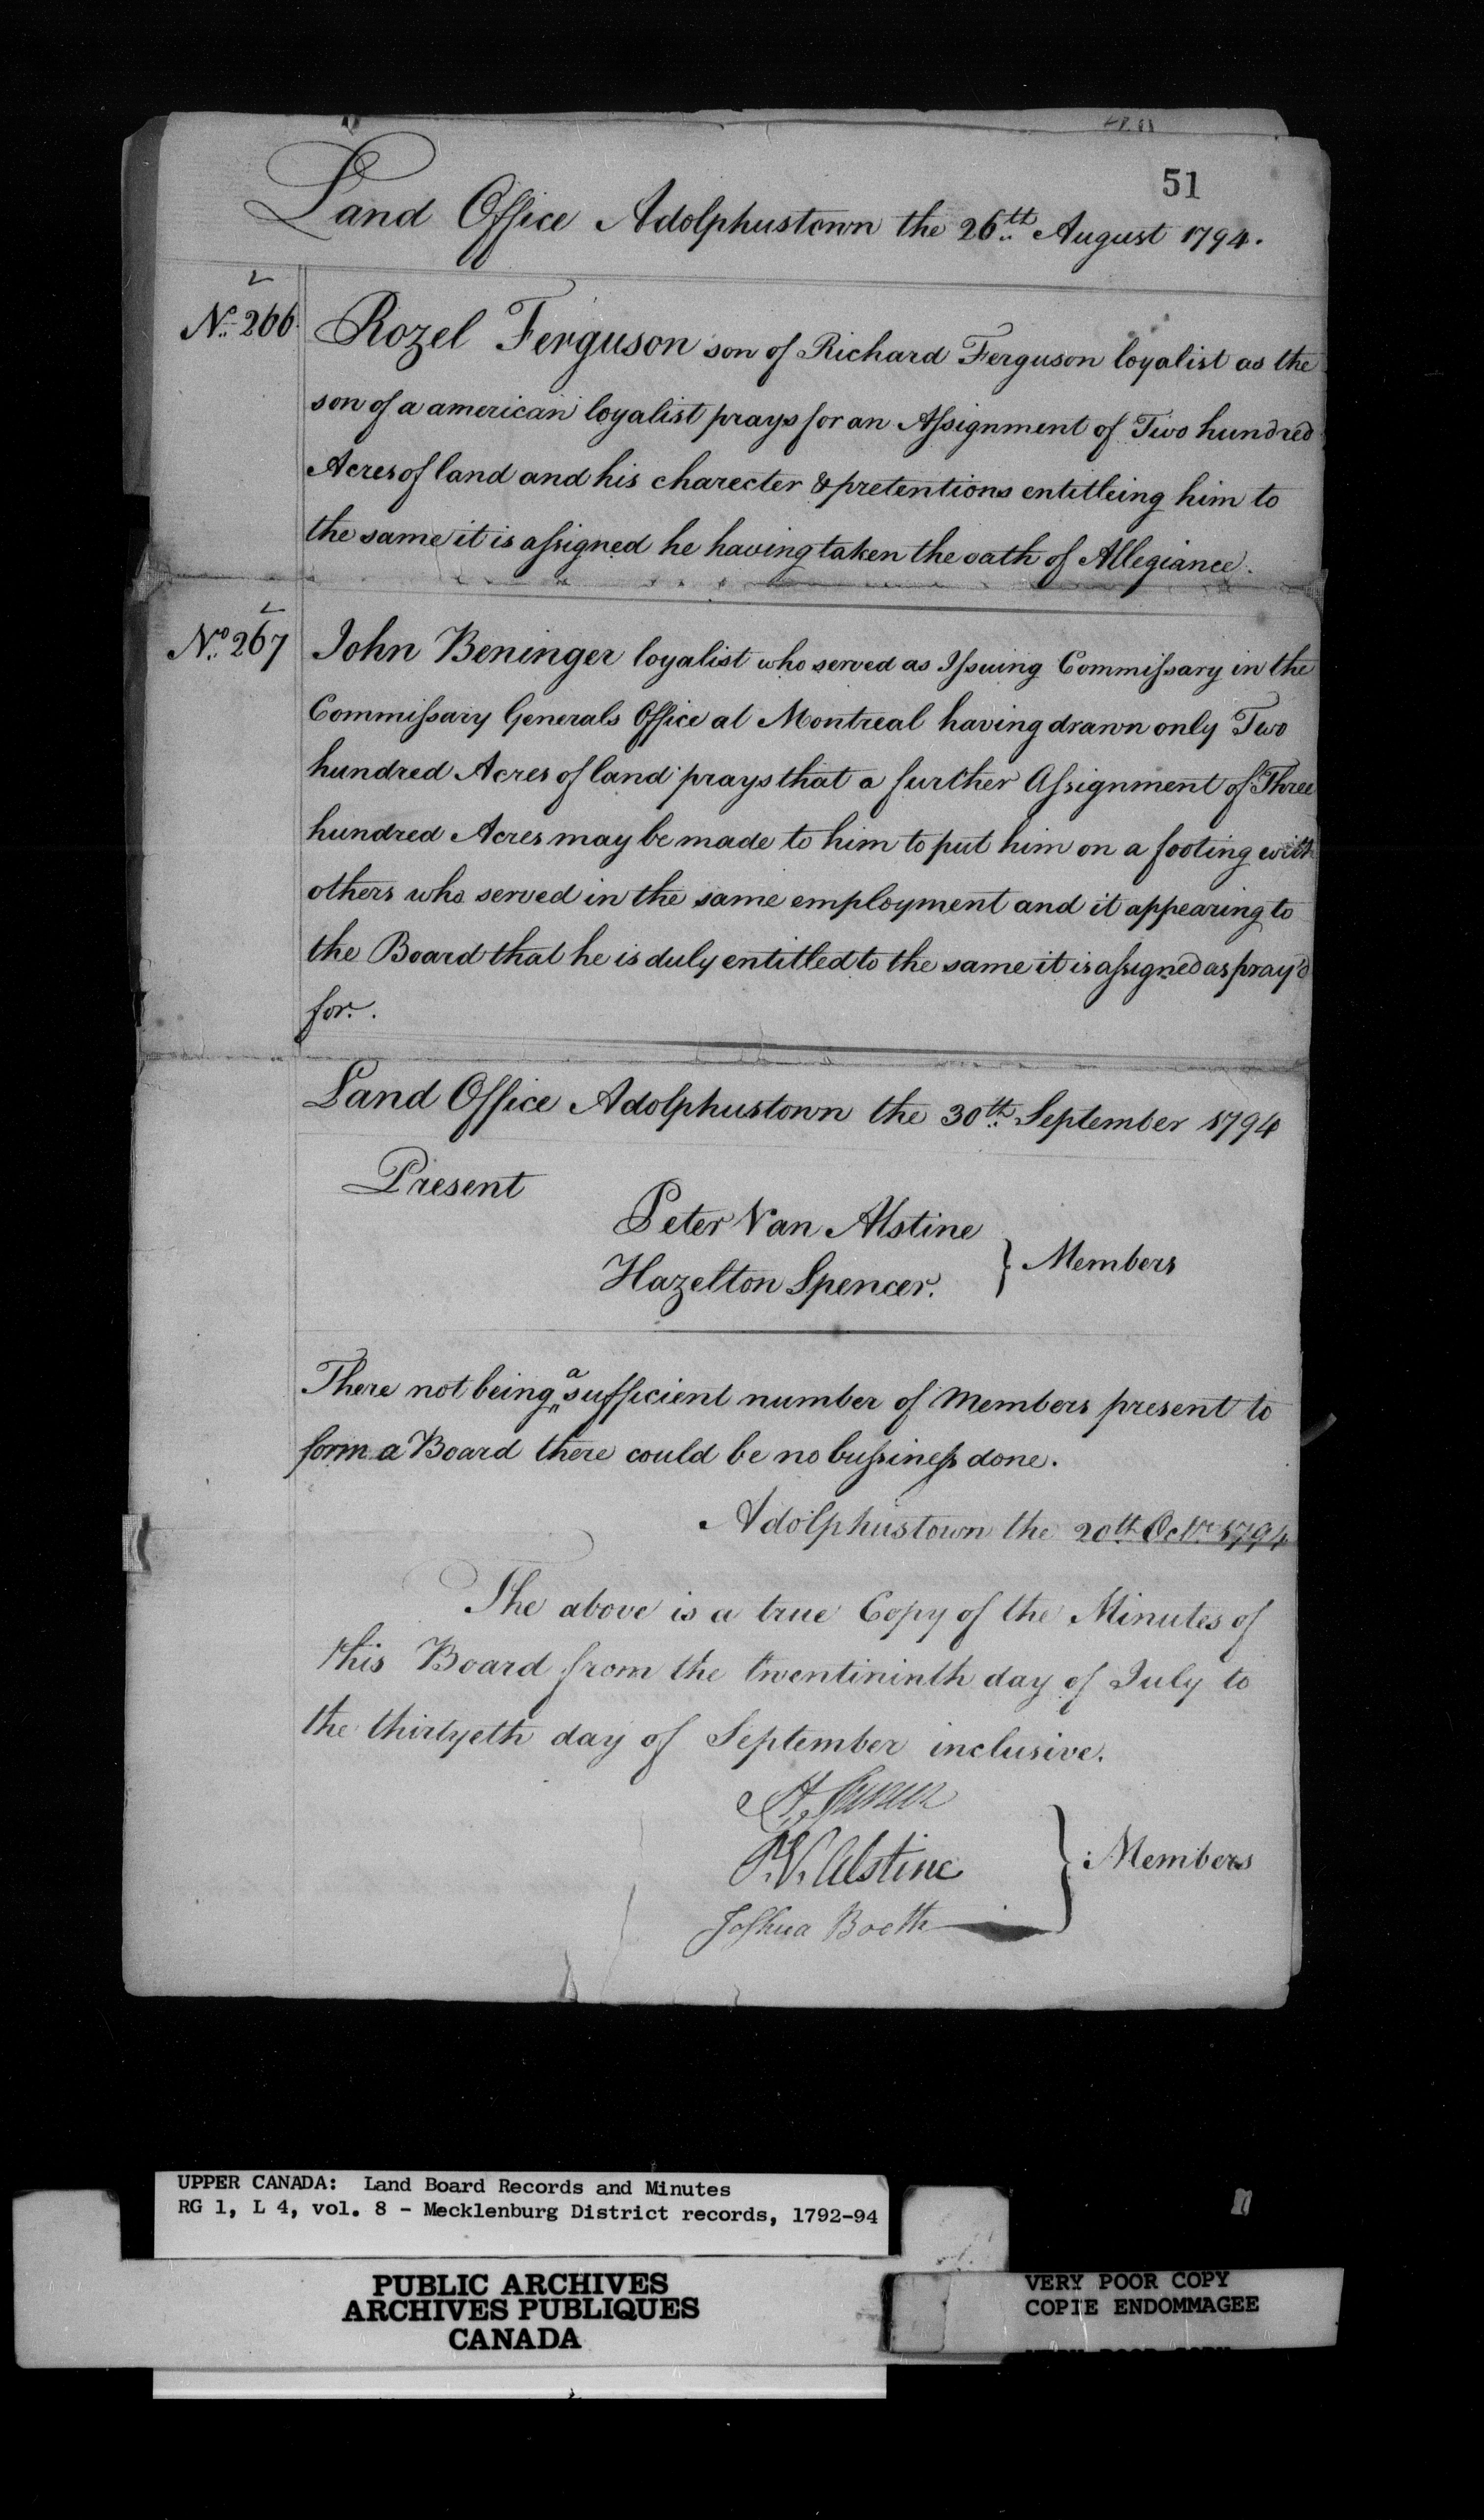 51
Land Office Adolphustown the 26th August 1794.
No. 266. Rozel Ferguson son of Richard Ferguson loyalist as the
son of a american loyalist prays for an Assignment of Two hundred
Acres of land and his charecter & pretentions entitleing him to
the same it is assigned he having taken the oath of Allegiance.
No. 267 John Beninger loyalist who served as Issuing Commissary in the
Commissary Generals Office at Montreal having drawn only Two
hundred Acres of land prays that a further Assignment of Three
hundred Acres may be made to him to put him on a footing with
others who served in the same employment and it appearing to
the Board that he is duly entitled to the same it is assigned as pray'd
for.
Land Office Adolphustown the 30th September 1794
Present
Peter Van Alstine
Hazelton Spencer. } Members
There not being a sufficient number of Members present to
form a Board there could be no bussiness done.
Adolphustown the 20th Octr 1794
The above is a true Copy of the Minutes of
this Board from the twentininth day of July to
the thirtyeth day of September inclusive.
H. Spencer
P. V. Alstine } Members
Joshua Booth
UPPER CANADA: Land Board Records and Minutes
RG 1, L 4, vol. 8 - Mecklenburg District records, 1792-94
PUBLIC ARCHIVES
ARCHIVES PUBLIQUES
CANADA
VERY POOR COPY
COPIE ENDOMMAGEE